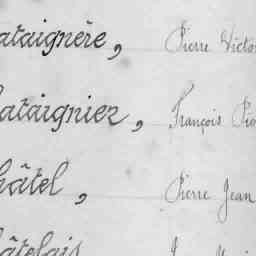 ataignère, Pierre Victo
ataignier, François Pie
hâtel, Pierre Jean
âtelais